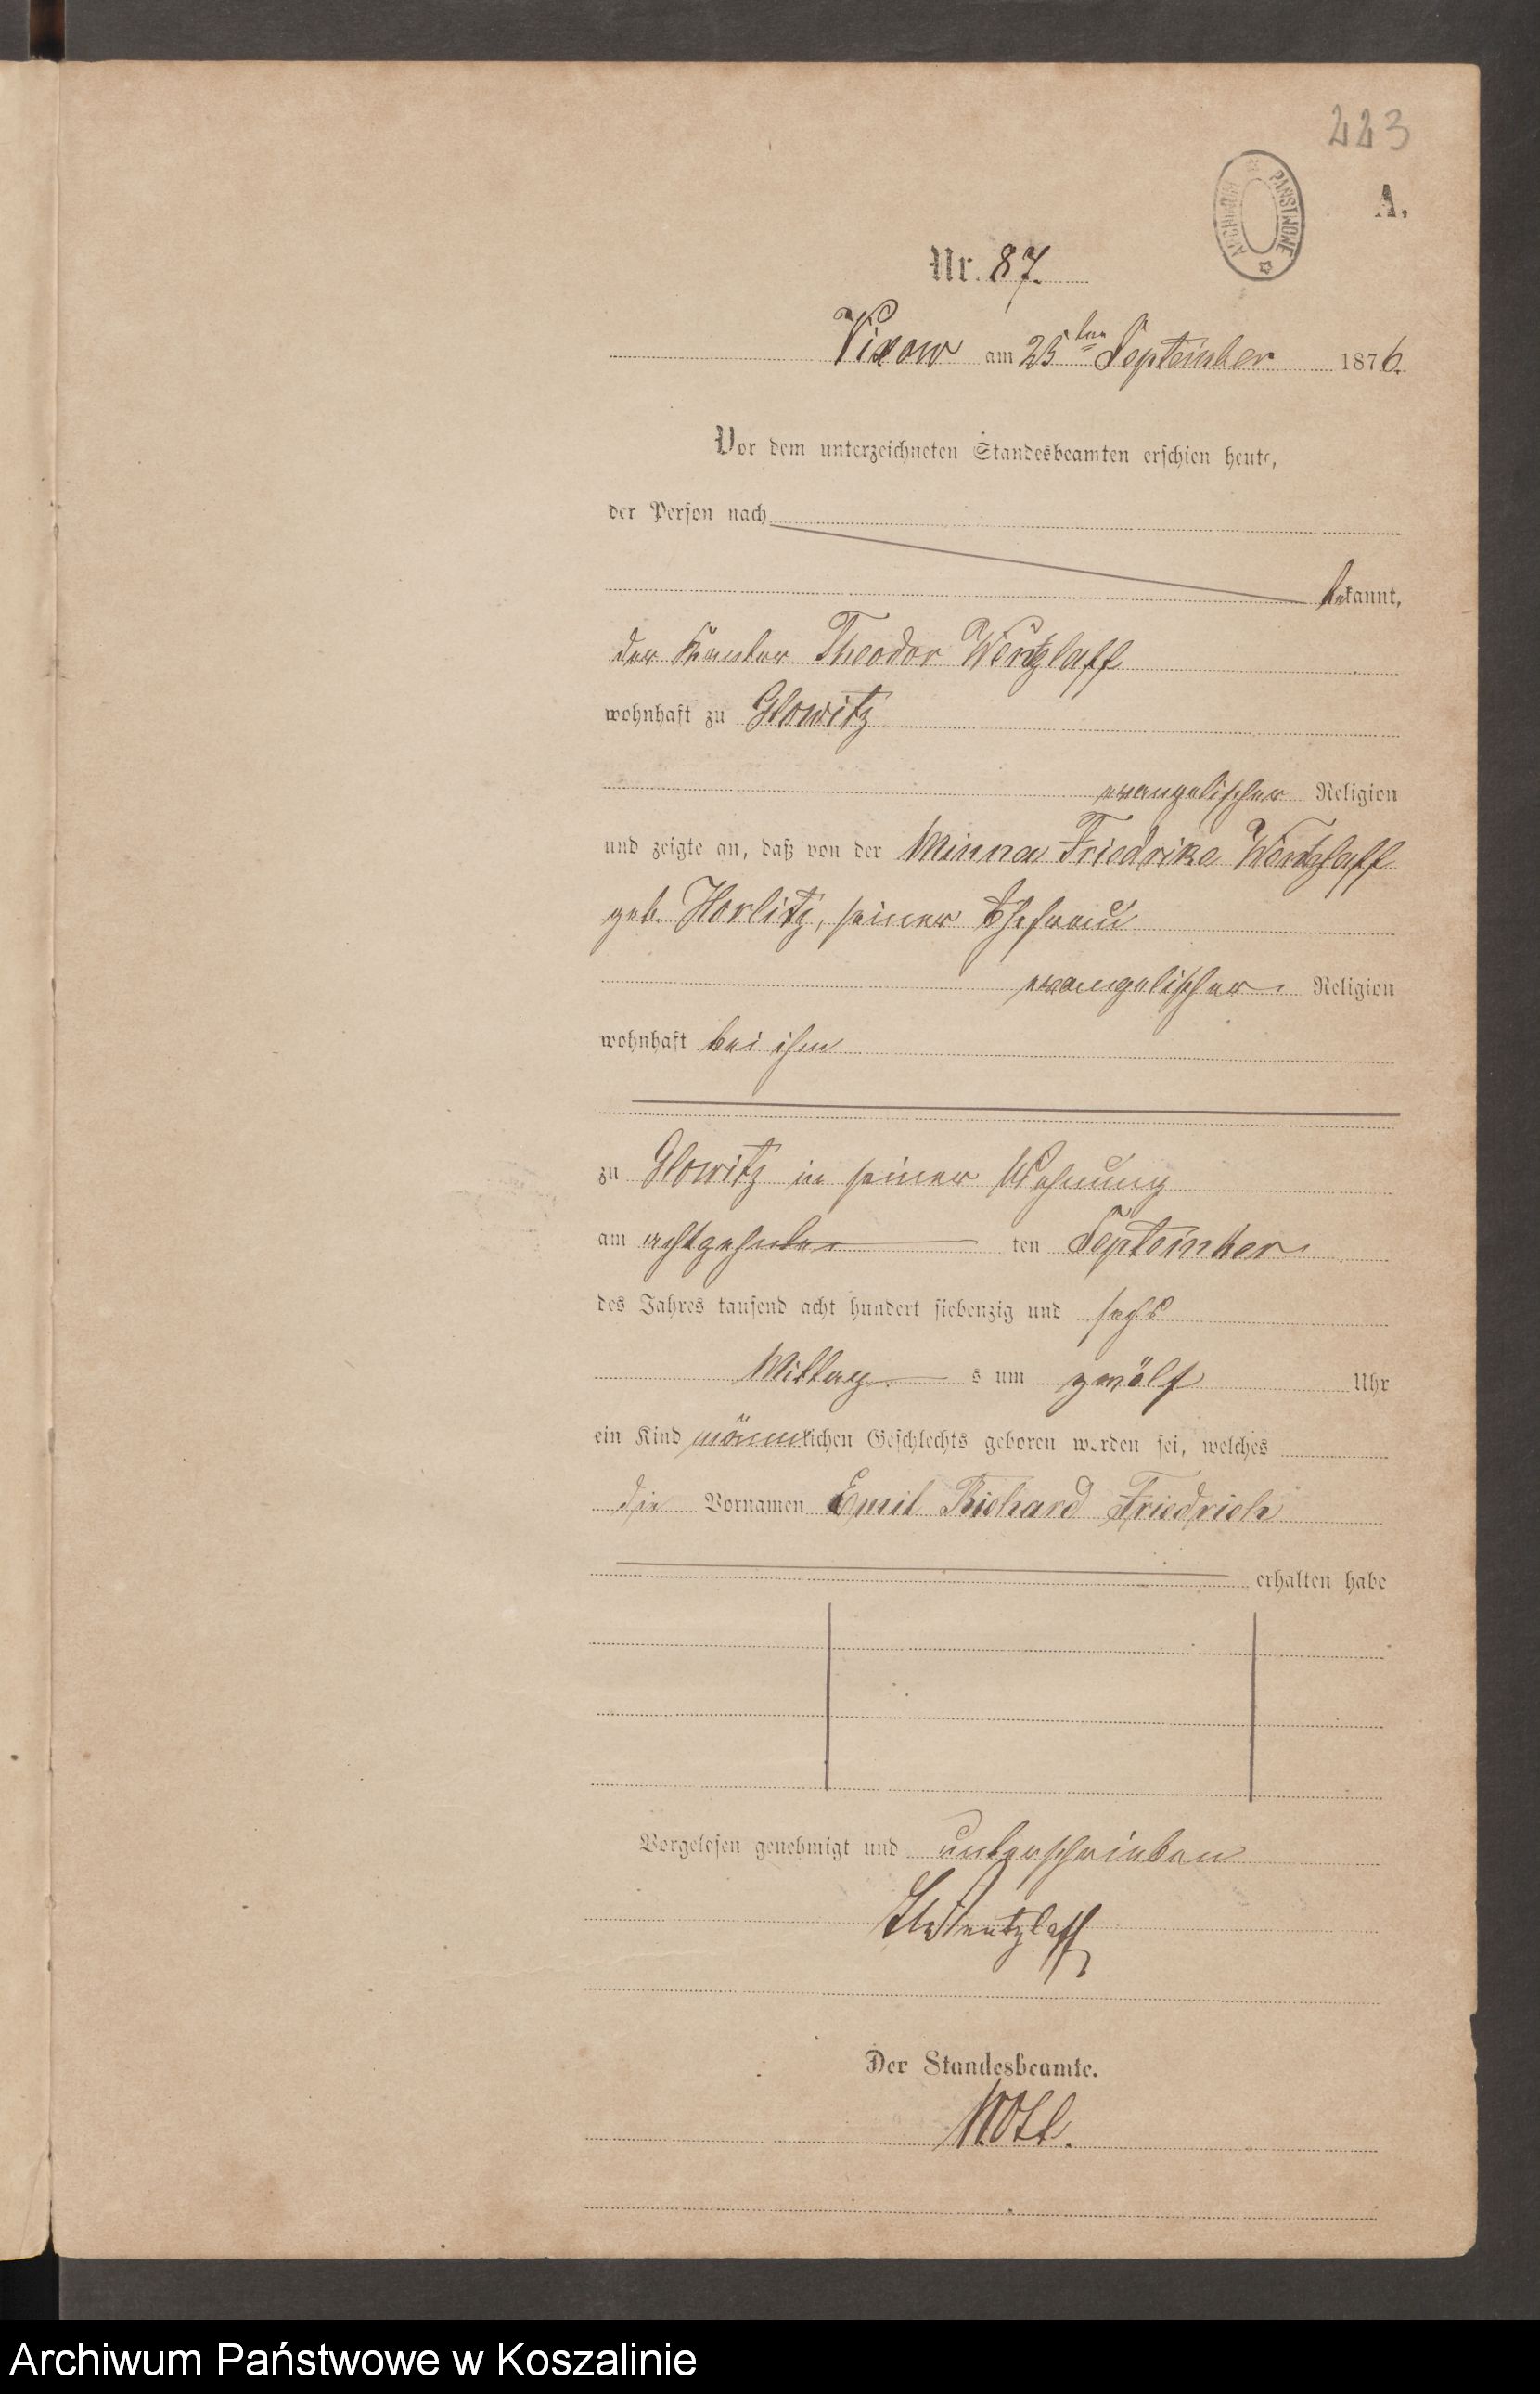 223
ARCHIWUM PAŃSTWOWE
A.
Nr. 87.
Vixow am 25ten September 1876.
Vor dem unterzeichneten Standesbeamten erschien heute,
der Person nach
bekannt,
der Kantor Theodor Wentzlaff
wohnhaft zu Glowitz
evangelischer Religion
und zeigte an, daß von der Minna Friedrike Wentzlaff
geb. Horlitz, seiner Ehefrau
evangelischer Religion
wohnhaft bei ihm
zu Glowitz in seiner Wohnung
am achtzehnten ten September
des Jahres tausend acht hundert siebenzig und sechs
Mittag s um zwölf Uhr
ein Kind männlichen Geschlechts geboren worden sei, welches
die Vornamen Emil Richard Friedrich
erhalten habe
Vorgelesen genehmigt und unterschrieben
Wentzlaff
Der Standesbeamte.
Archiwum Państwowe w Koszalinie